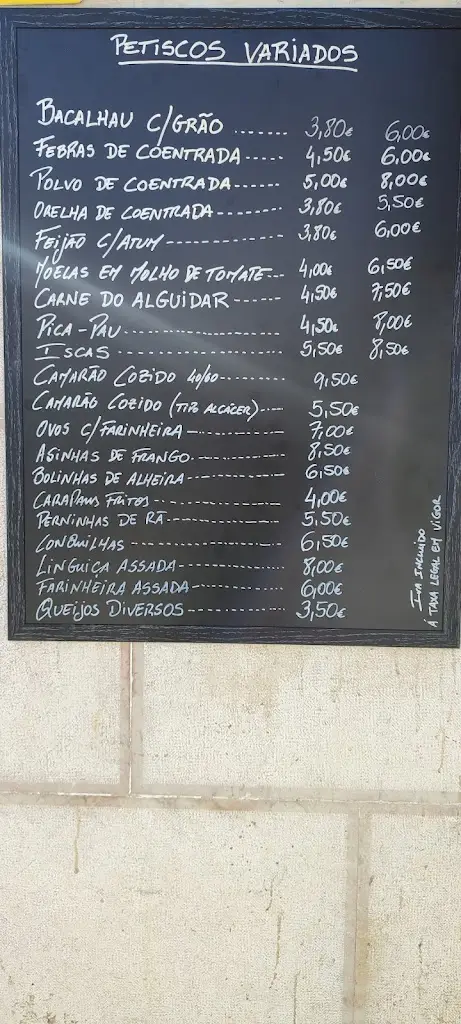 PETISCOS VARIADOS
BACALHAU C/GRÃO ...... 3,80€ 6,00€
FEBRAS DE COENTRADA ----- 4,50€ 6,00€
POLVO DE COENTRADA ------ 5,00€ 8,00€
ORELHA DE COENTRADA -------- 3,80€ 5,50€
FEIJÃO C/ATUM -------------- 3,80€ 6,00€
MOELAS EM MOLHO DE TOMATE --- 4,00€ 6,50€
CARNE DO ALGUIDAR -------- 4,50€ 7,50€
PICA-PAU ------------------- 4,50€ 8,00€
ISCAS -------------------- 5,50€ 8,50€
CAMARÃO COZIDO 40/60 --------- 9,50€
CAMARÃO COZIDO (TIPO ALCÁCER) ---- 5,50€
OVOS C/FARINHEIRA ------------ 7,00€
ASINHAS DE FRANGO ------------ 8,50€
BOLINHAS DE ALHEIRA ------------- 6,50€
CARAPAUS FRITOS ---------------- 4,00€
PERNINHAS DE RÃ --------------- 5,50€
CONQUILHAS ------------------- 6,50€
LINGUIÇA ASSADA ------------- 8,00€
FARINHEIRA ASSADA ------------- 6,00€
QUEIJOS DIVERSOS -------------- 3,50€
IVA INCLUIDO
Á TAXA LEGAL EM VIGOR